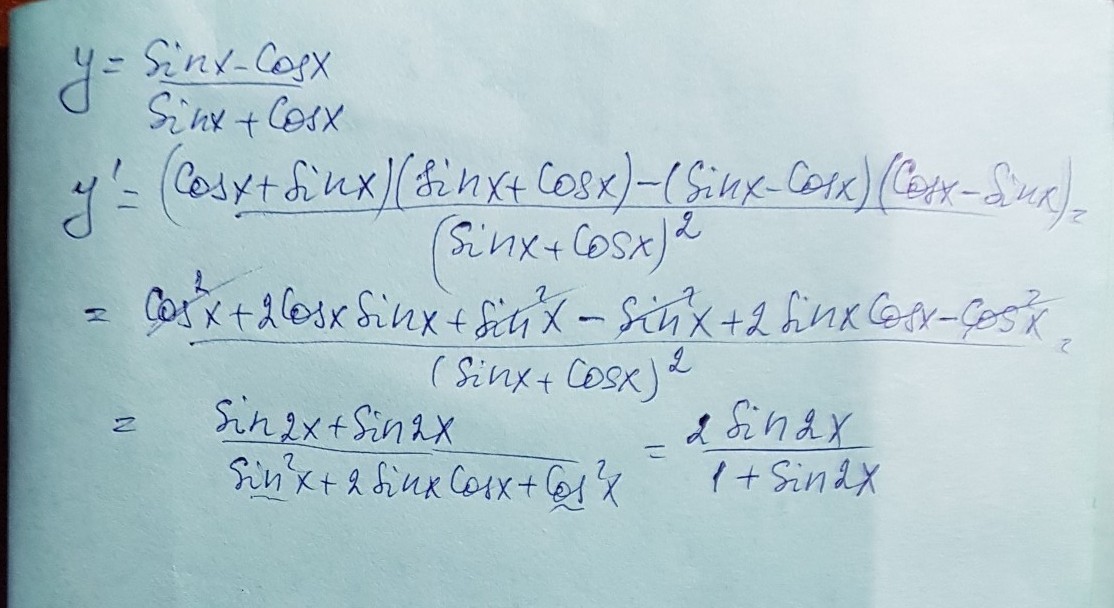 y = (Sinx - Cosx) / (Sinx + Cosx)
y' = ((Cosx + Sinx)(Sinx + Cosx) - (Sinx - Cosx)(Cosx - Sinx)) / (Sinx + Cosx)² =
= (Cos²x + 2CosxSinx + Sin²x - Sin²x + 2SinxCosx - Cos²x) / (Sinx + Cosx)² =
= (Sin2x + Sin2x) / (Sin²x + 2SinxCosx + Cos²x) = 2Sin2x / (1 + Sin2x)